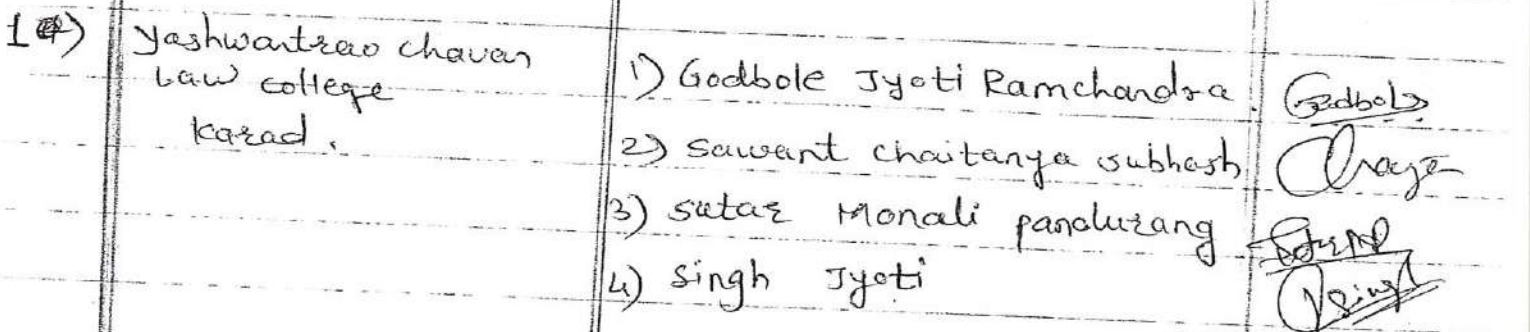 Yashwantrao chavan
Law college
Karad.
1) Godbole Jyoti Ramchandra.
Godbole
2) Sawant chaitanya subhash
3) sutar Monali pandurang
4) Singh Jyoti
Singh